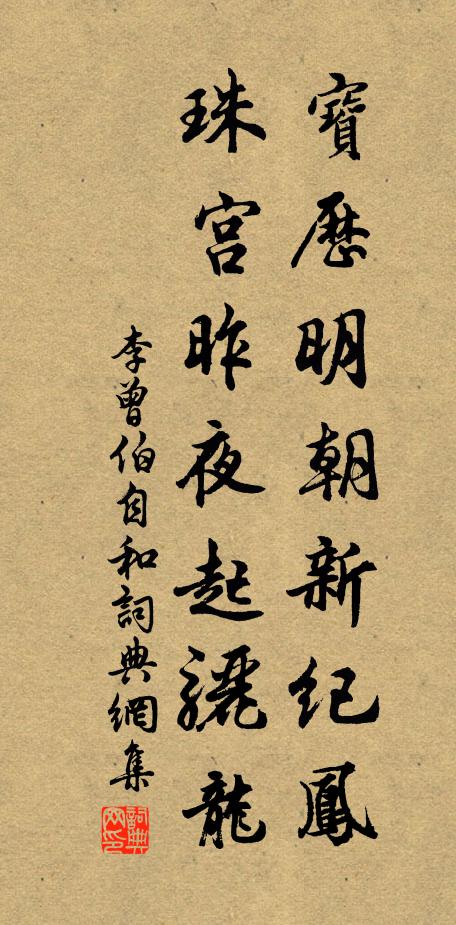 寶歷明朝新紀鳳
珠宮昨夜起驪龍
李曾伯自和詞典網集
詞典網印